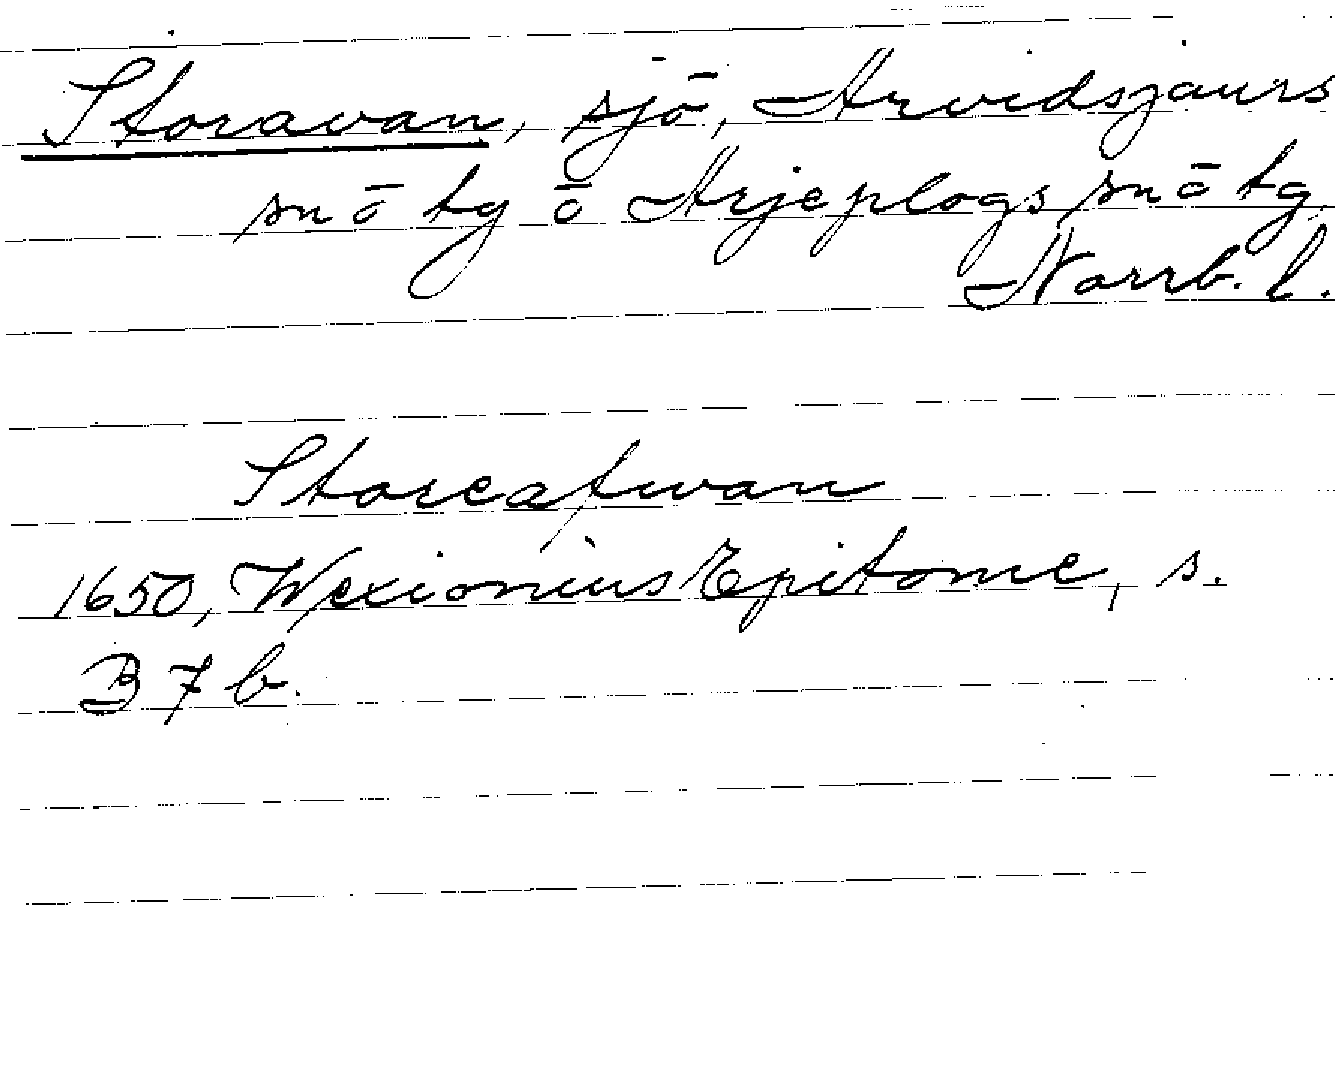 Storavan, sjö, Arvidsjaurs
sn ö tg ö Arjeplogs sn ö tg.
Norrb. l.
Storeafwan
1650, Wexionius Epitome, s.
B 7 b.